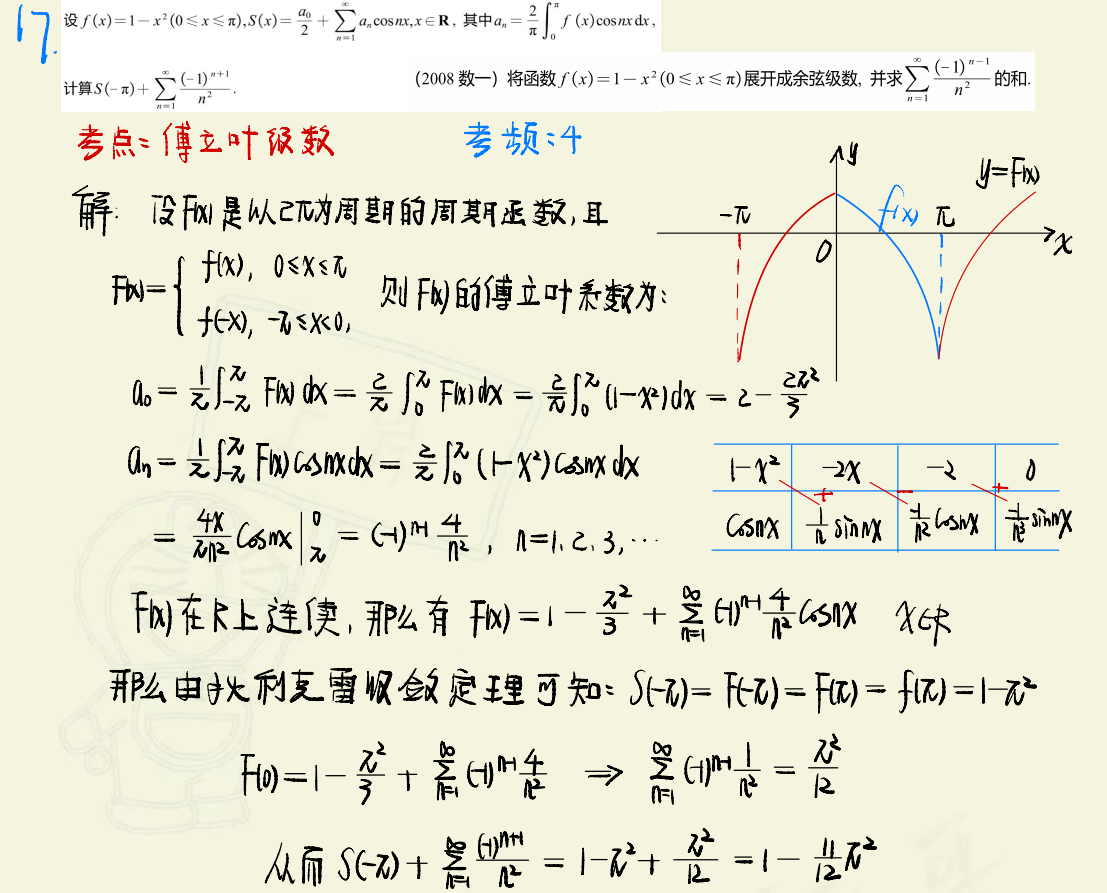 17.
设 f(x)=1−x²(0≤x≤π),S(x)=a₀/2+∑_{n=1}^{∞}aₙcosnx,x∈R, 其中aₙ=2/π∫₀^π f(x)cosnxdx,
计算S(−π)+∑_{n=1}^{∞}(−1)^{n+1}/n².
(2008 数一) 将函数 f(x)=1−x²(0≤x≤π)展开成余弦级数, 并求∑_{n=1}^{∞}(−1)^{n−1}/n² 的和.
考点:傅立叶级数 考频:4
解: 设F(x)是以2π为周期的周期函数,且
F(x)={ f(x), 0≤x≤π
f(−x), −π≤x<0,
则F(x)的傅立叶系数为:
y
y=F(x)
−π
f(x)
π
0
x
a₀=1/π∫_{−π}^{π}F(x)dx=2/π∫₀^π F(x)dx=2/π∫₀^π(1−x²)dx=2−2π²/3
aₙ=1/π∫_{−π}^{π}F(x)cosnxdx=2/π∫₀^π(1−x²)cosnxdx
=4x/πn² cosnx|_π^0=(−1)^{n−1}4/n², n=1,2,3,⋯
1−x² −2x −2 0
+ − +
cosnx 1/n sinnx −1/n² cosnx −1/n³ sinnx
F(x)在R上连续,那么有 F(x)=1−π²/3+∑_{n=1}^{∞}(−1)^{n−1}4/n² cosnx x∈R
那么由狄利克雷收敛定理可知:S(−π)=F(−π)=F(π)=f(π)=1−π²
F(0)=1−π²/3+∑_{n=1}^{∞}(−1)^{n−1}4/n² ⇒ ∑_{n=1}^{∞}(−1)^{n−1}1/n²=π²/12
从而 S(−π)+∑_{n=1}^{∞}(−1)^{n+1}/n²=1−π²+π²/12=1−11/12π²